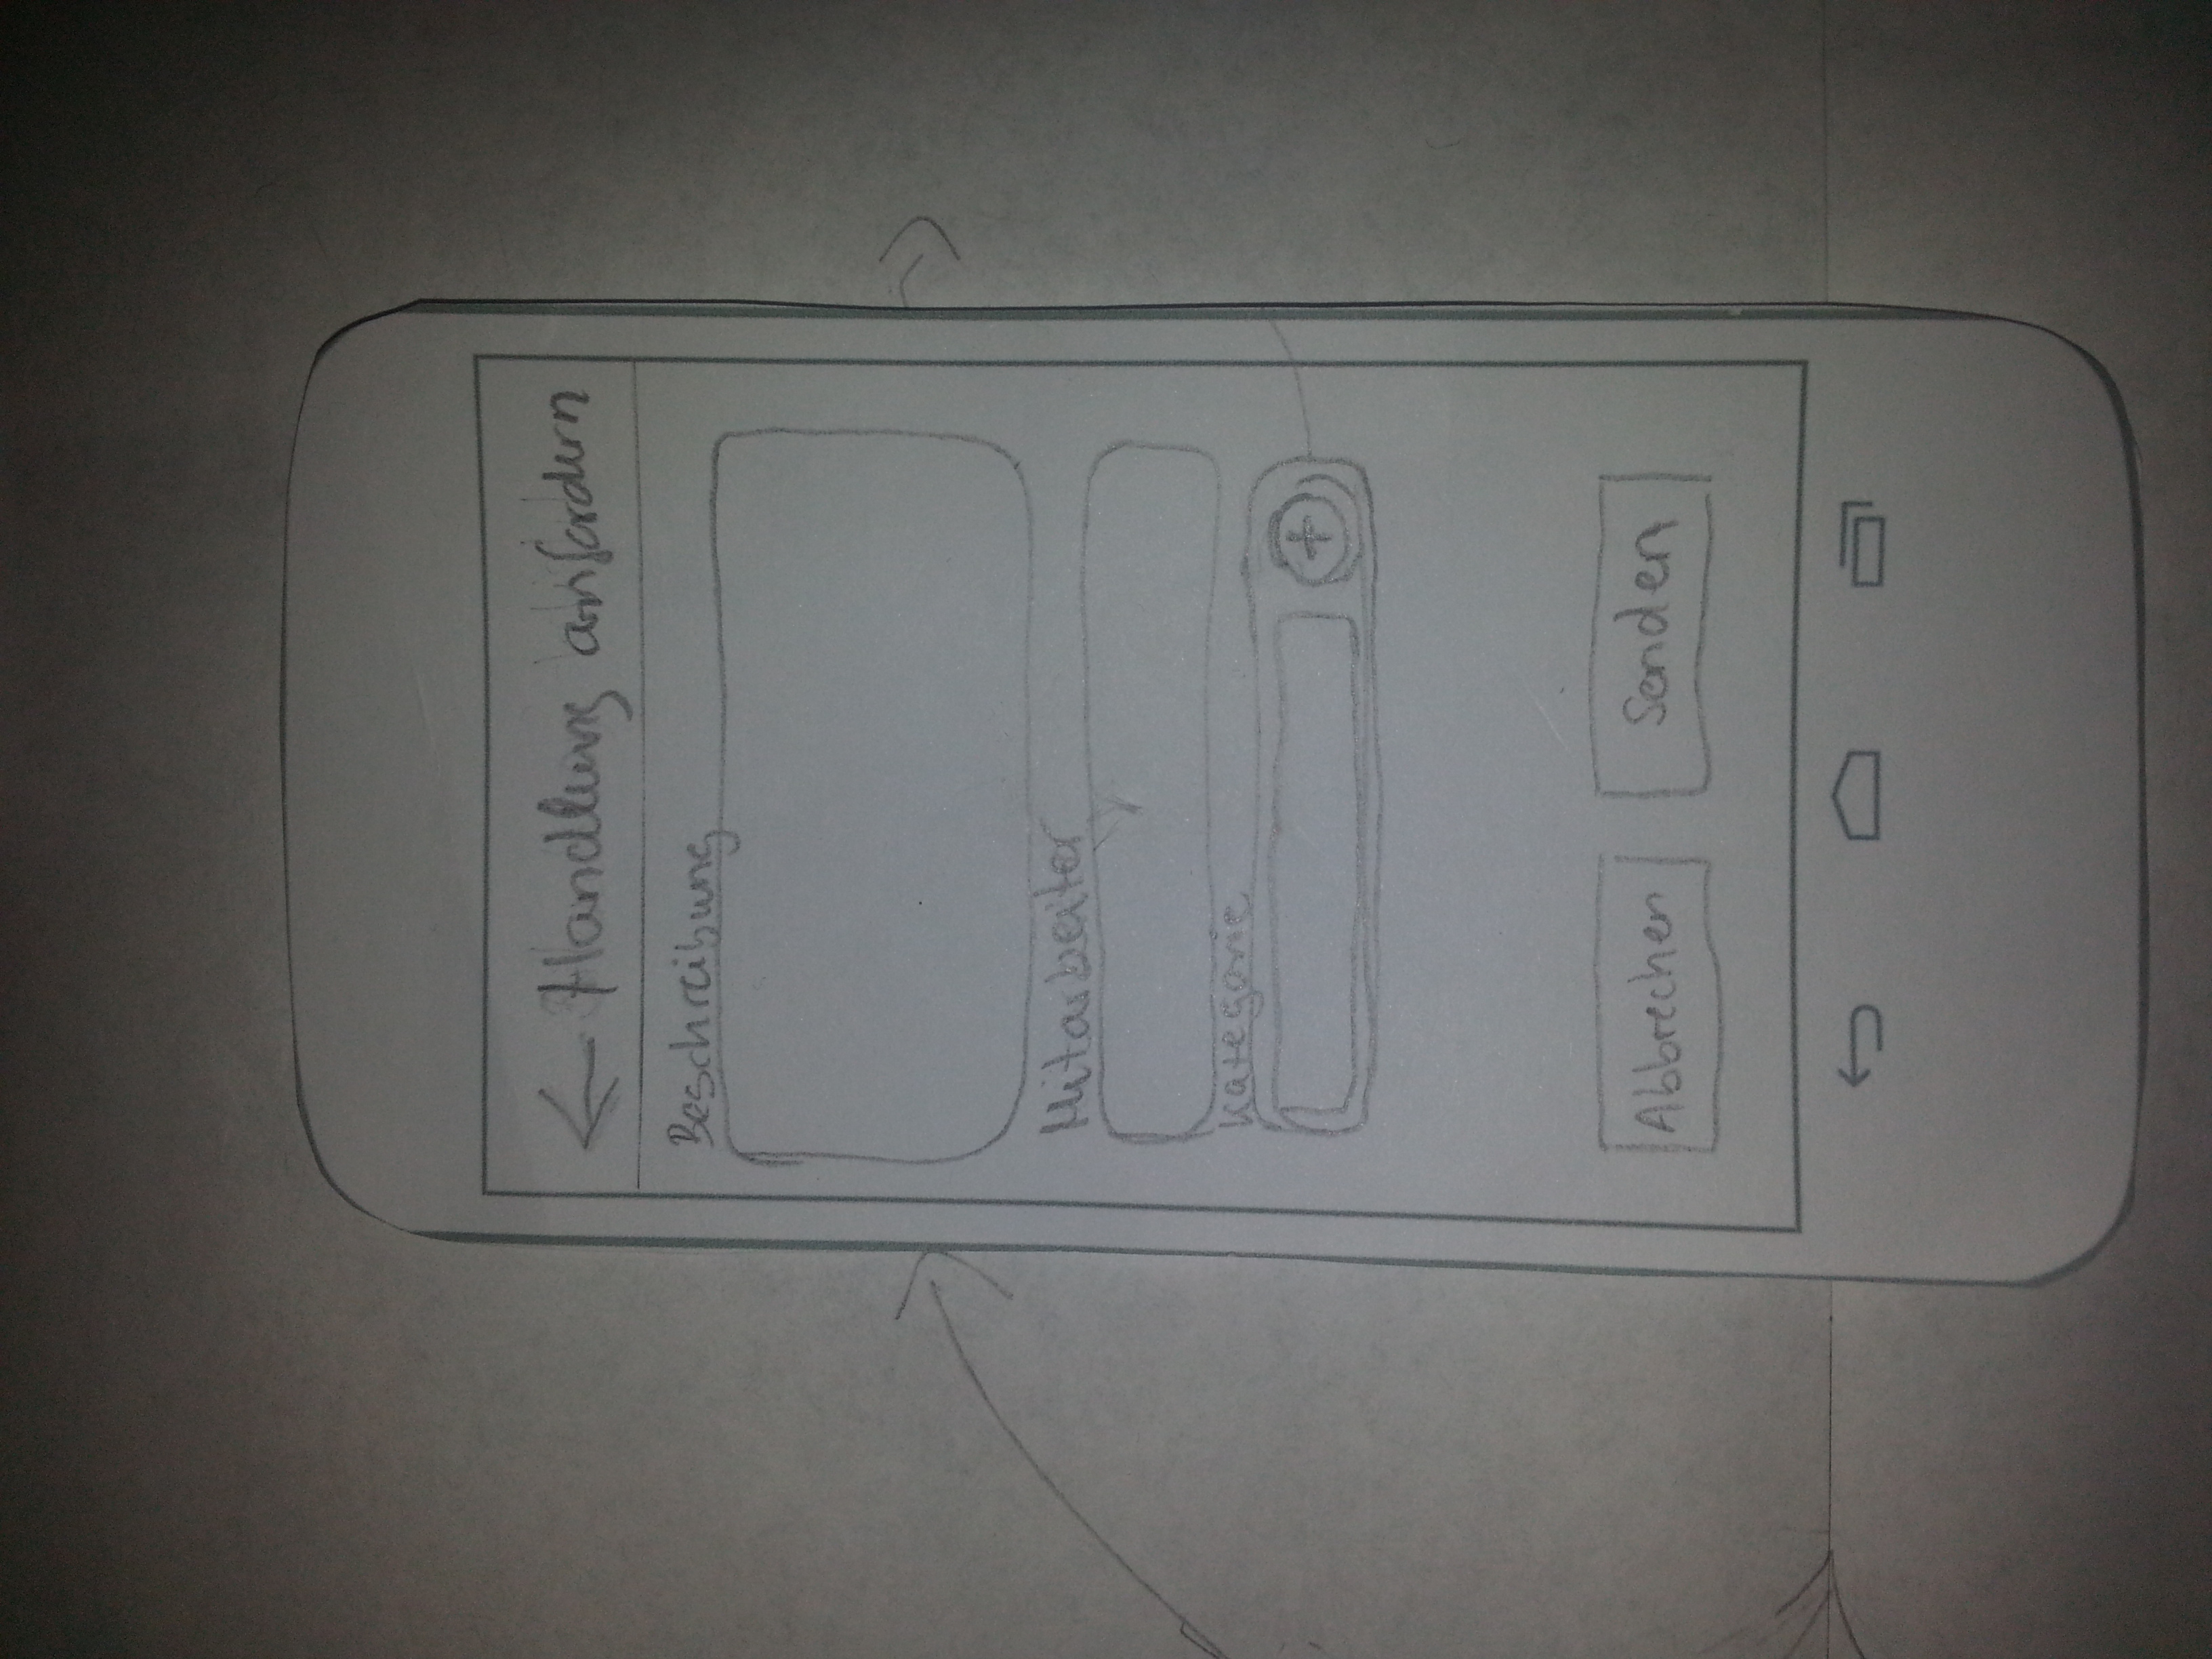 ← Handlung anfordern
Beschreibung
Mitarbeiter
Kategorie
+
Abbrechen
Senden